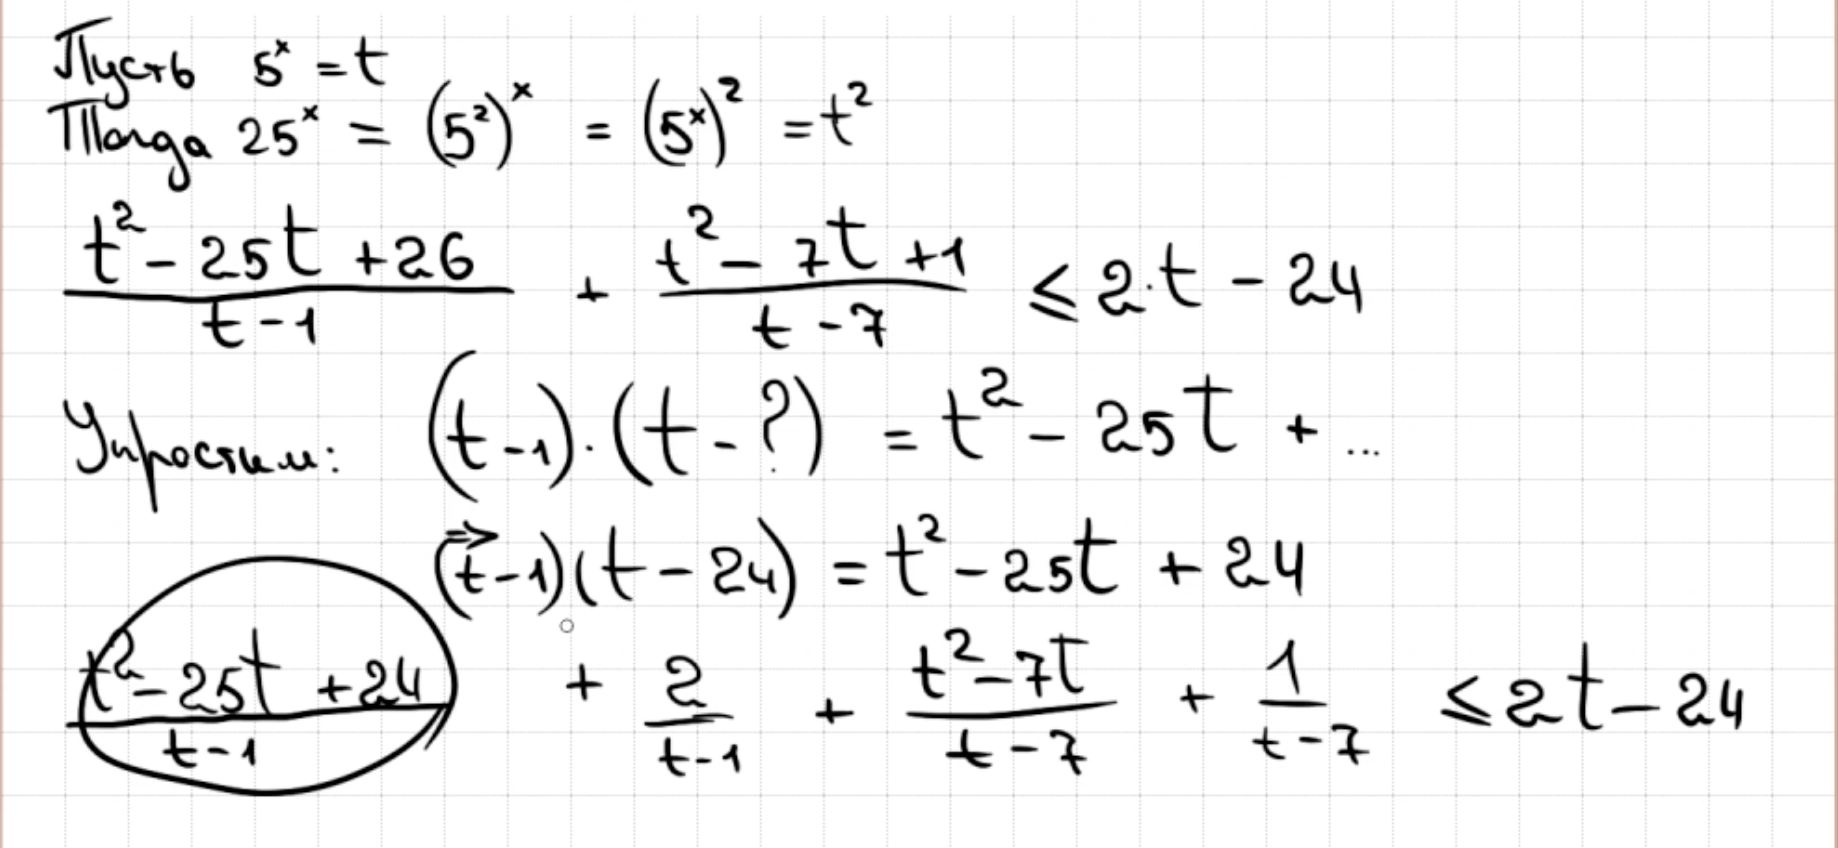 Пусть 5^x = t
Тогда 25^x = (5^2)^x = (5^x)^2 = t^2
(t^2 - 25t + 26)/(t - 1) + (t^2 - 7t + 1)/(t - 7) ≤ 2·t - 24
Упростим: (t - 1)·(t - ?) = t^2 - 25t + ...
(t - 1)(t - 24) = t^2 - 25t + 24
(t^2 - 25t + 24)/(t - 1) + 2/(t - 1) + (t^2 - 7t)/(t - 7) + 1/(t - 7) ≤ 2t - 24